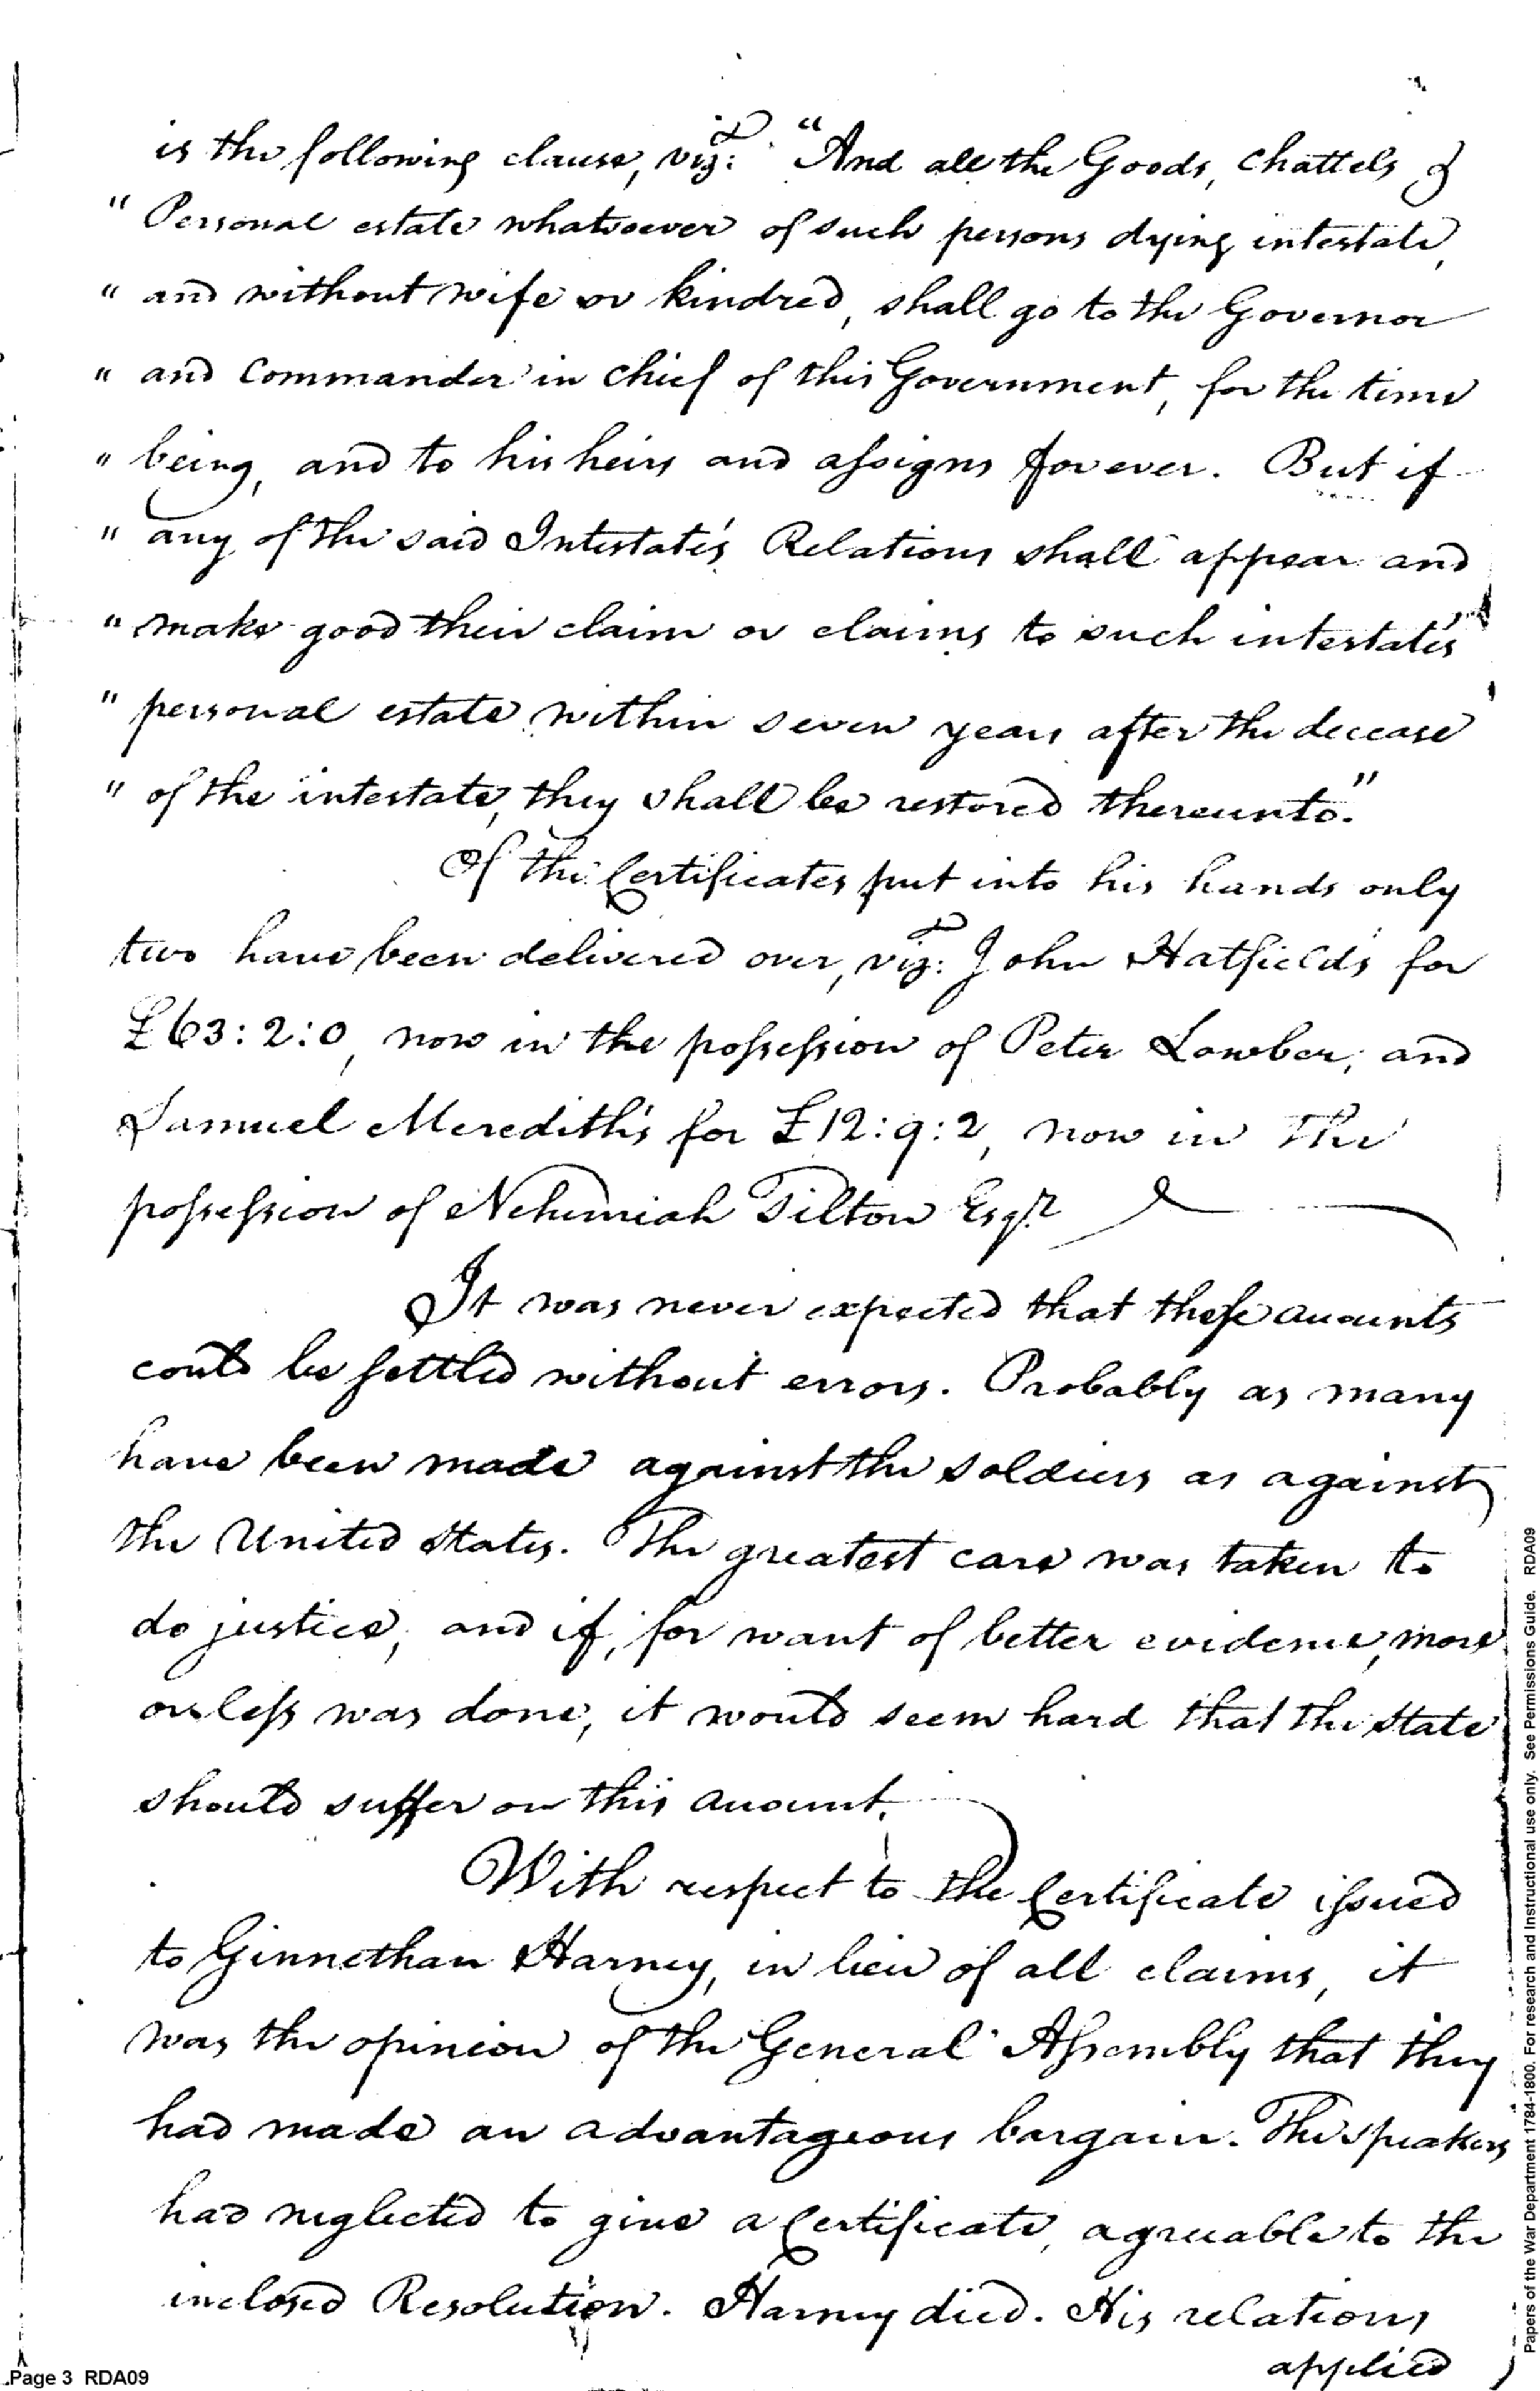 is the following clause, viz: "And all the Goods, Chattels &
" Personal estate whatsoever of such persons dying intestate,
" and without wife or kindred, shall go to the Governor
" and Commander in chief of this Government, for the time
" being, and to his heirs and assigns forever. But if
" any of the said Intestate's Relations shall appear and
" make good their claim or claims to such intestate's
" personal estate within seven years after the decease
" of the intestate, they shall be restored thereunto."
Of the Certificates put into his hands only
two have been delivered over, viz: John Hatfield's for
£63:2:0, now in the possession of Peter Lowber; and
Samuel Meredith's for £12:9:2, now in the
possession of Nehemiah Tilton Esqr.
It was never expected that these accounts
could be settled without errors. Probably as many
have been made against the soldiers as against
the United States. The greatest care was taken to
do justice, and if, for want of better evidence, more
or less was done, it would seem hard that the State
should suffer on this account.
With respect to the Certificate issued
to Ginnethan Harney, in lieu of all claims, it
was the opinion of the General Assembly that they
had made an advantageous bargain. The speakers
had neglected to give a Certificate, agreeable to the
inclosed Resolution. Harney died. His relations
applied
Page 3 RDA09
Papers of the War Department 1784-1800. For research and Instructional use only. See Permissions Guide. RDA09